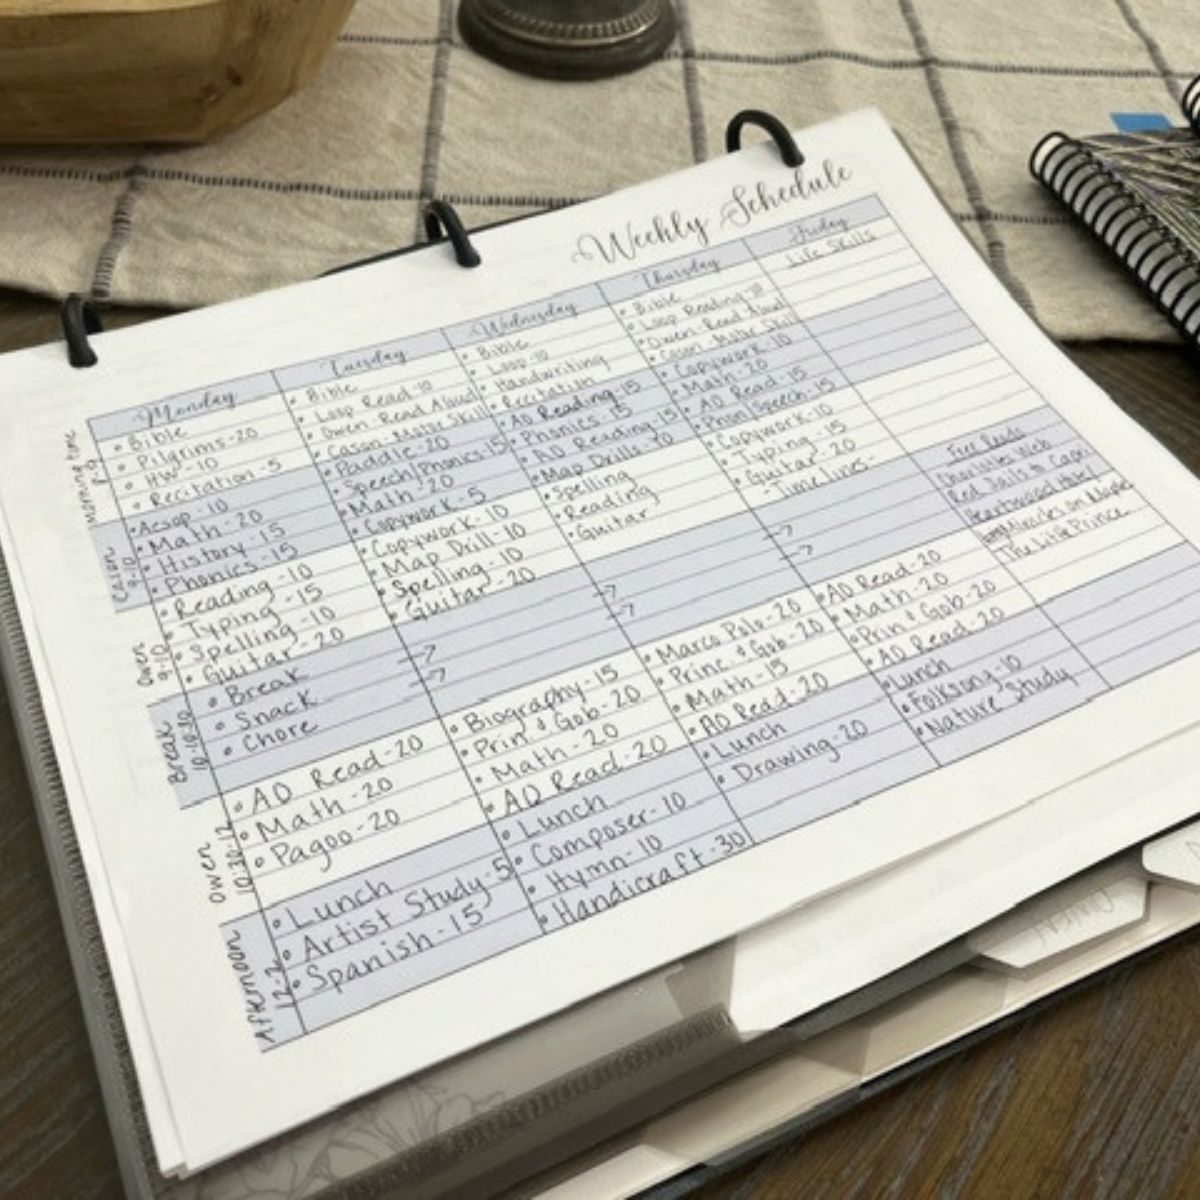 Weekly Schedule
Monday
• Bible
• Pilgrims-20
• HW-10
• Recitation-5
• Aesop-10
• Math-20
• History-15
• Phonics-15
• Reading-10
• Typing-15
• Spelling-10
• Guitar-20
• Break
• Snack
• Chore
• AO Read-20
• Math-20
• Pagoo-20
• Lunch
• Artist Study-5
• Spanish-15
Tuesday
• Bible
• Loop Read-10
• Owen-Read Aloud
• Cason-Motor Skill
• Paddle-20
• Speech/Phonics-15
• Math-20
• Copywork-5
• Copywork-10
• Map Drill-10
• Spelling-10
• Guitar-20
→
→
• Biography-15
• Prin & Gob-20
• Math-20
• AO Read-20
• Lunch
• Composer-10
• Hymn-10
• Handicraft-30
Wednesday
• Bible
• Loop-10
• Handwriting
• Recitation
• AO Reading-15
• Phonics-15
• AO Reading-15
• Map Drills-10
• Spelling
• Reading
• Guitar
→
→
• Marco Polo-20
• Princ. & Gob-20
• Math-15
• AO Read-20
• Lunch
• Drawing-20
Thursday
• Bible
• Loop Reading-10
• Owen-Read Aloud
• Cason-Motor Skill
• Copywork-10
• Math-20
• AO Read-15
• Phon/Speech-15
• Copywork-10
• Typing-15
• Guitar-20
-Timelines-
→
→
• AO Read-20
• Math-20
• Prin & Gob-20
• AO Read-20
• Lunch
• Folksong-10
• Nature Study
Friday
Life Skills
Free Reads
Charlottes Web
Red Sails to Capri
Heartwood Hotel
Miracles on Maple
The Little Prince
Morning time
Cason
9-10
Owen
9-10
Break
10-10:30
Owen
10:30-12
Afternoon
12-2